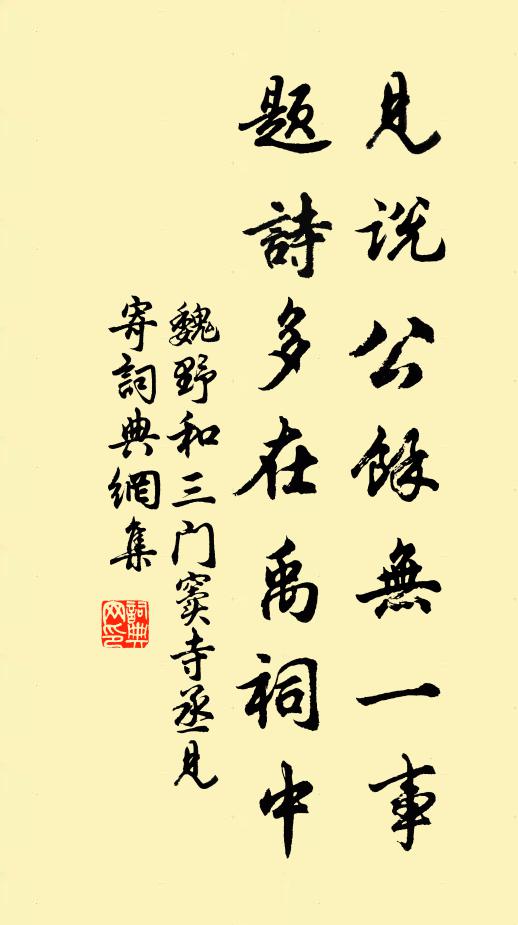 見説公餘無一事
題詩多在禹祠中
魏野和三门竇寺丞見
寄詞典網集
詞典網印